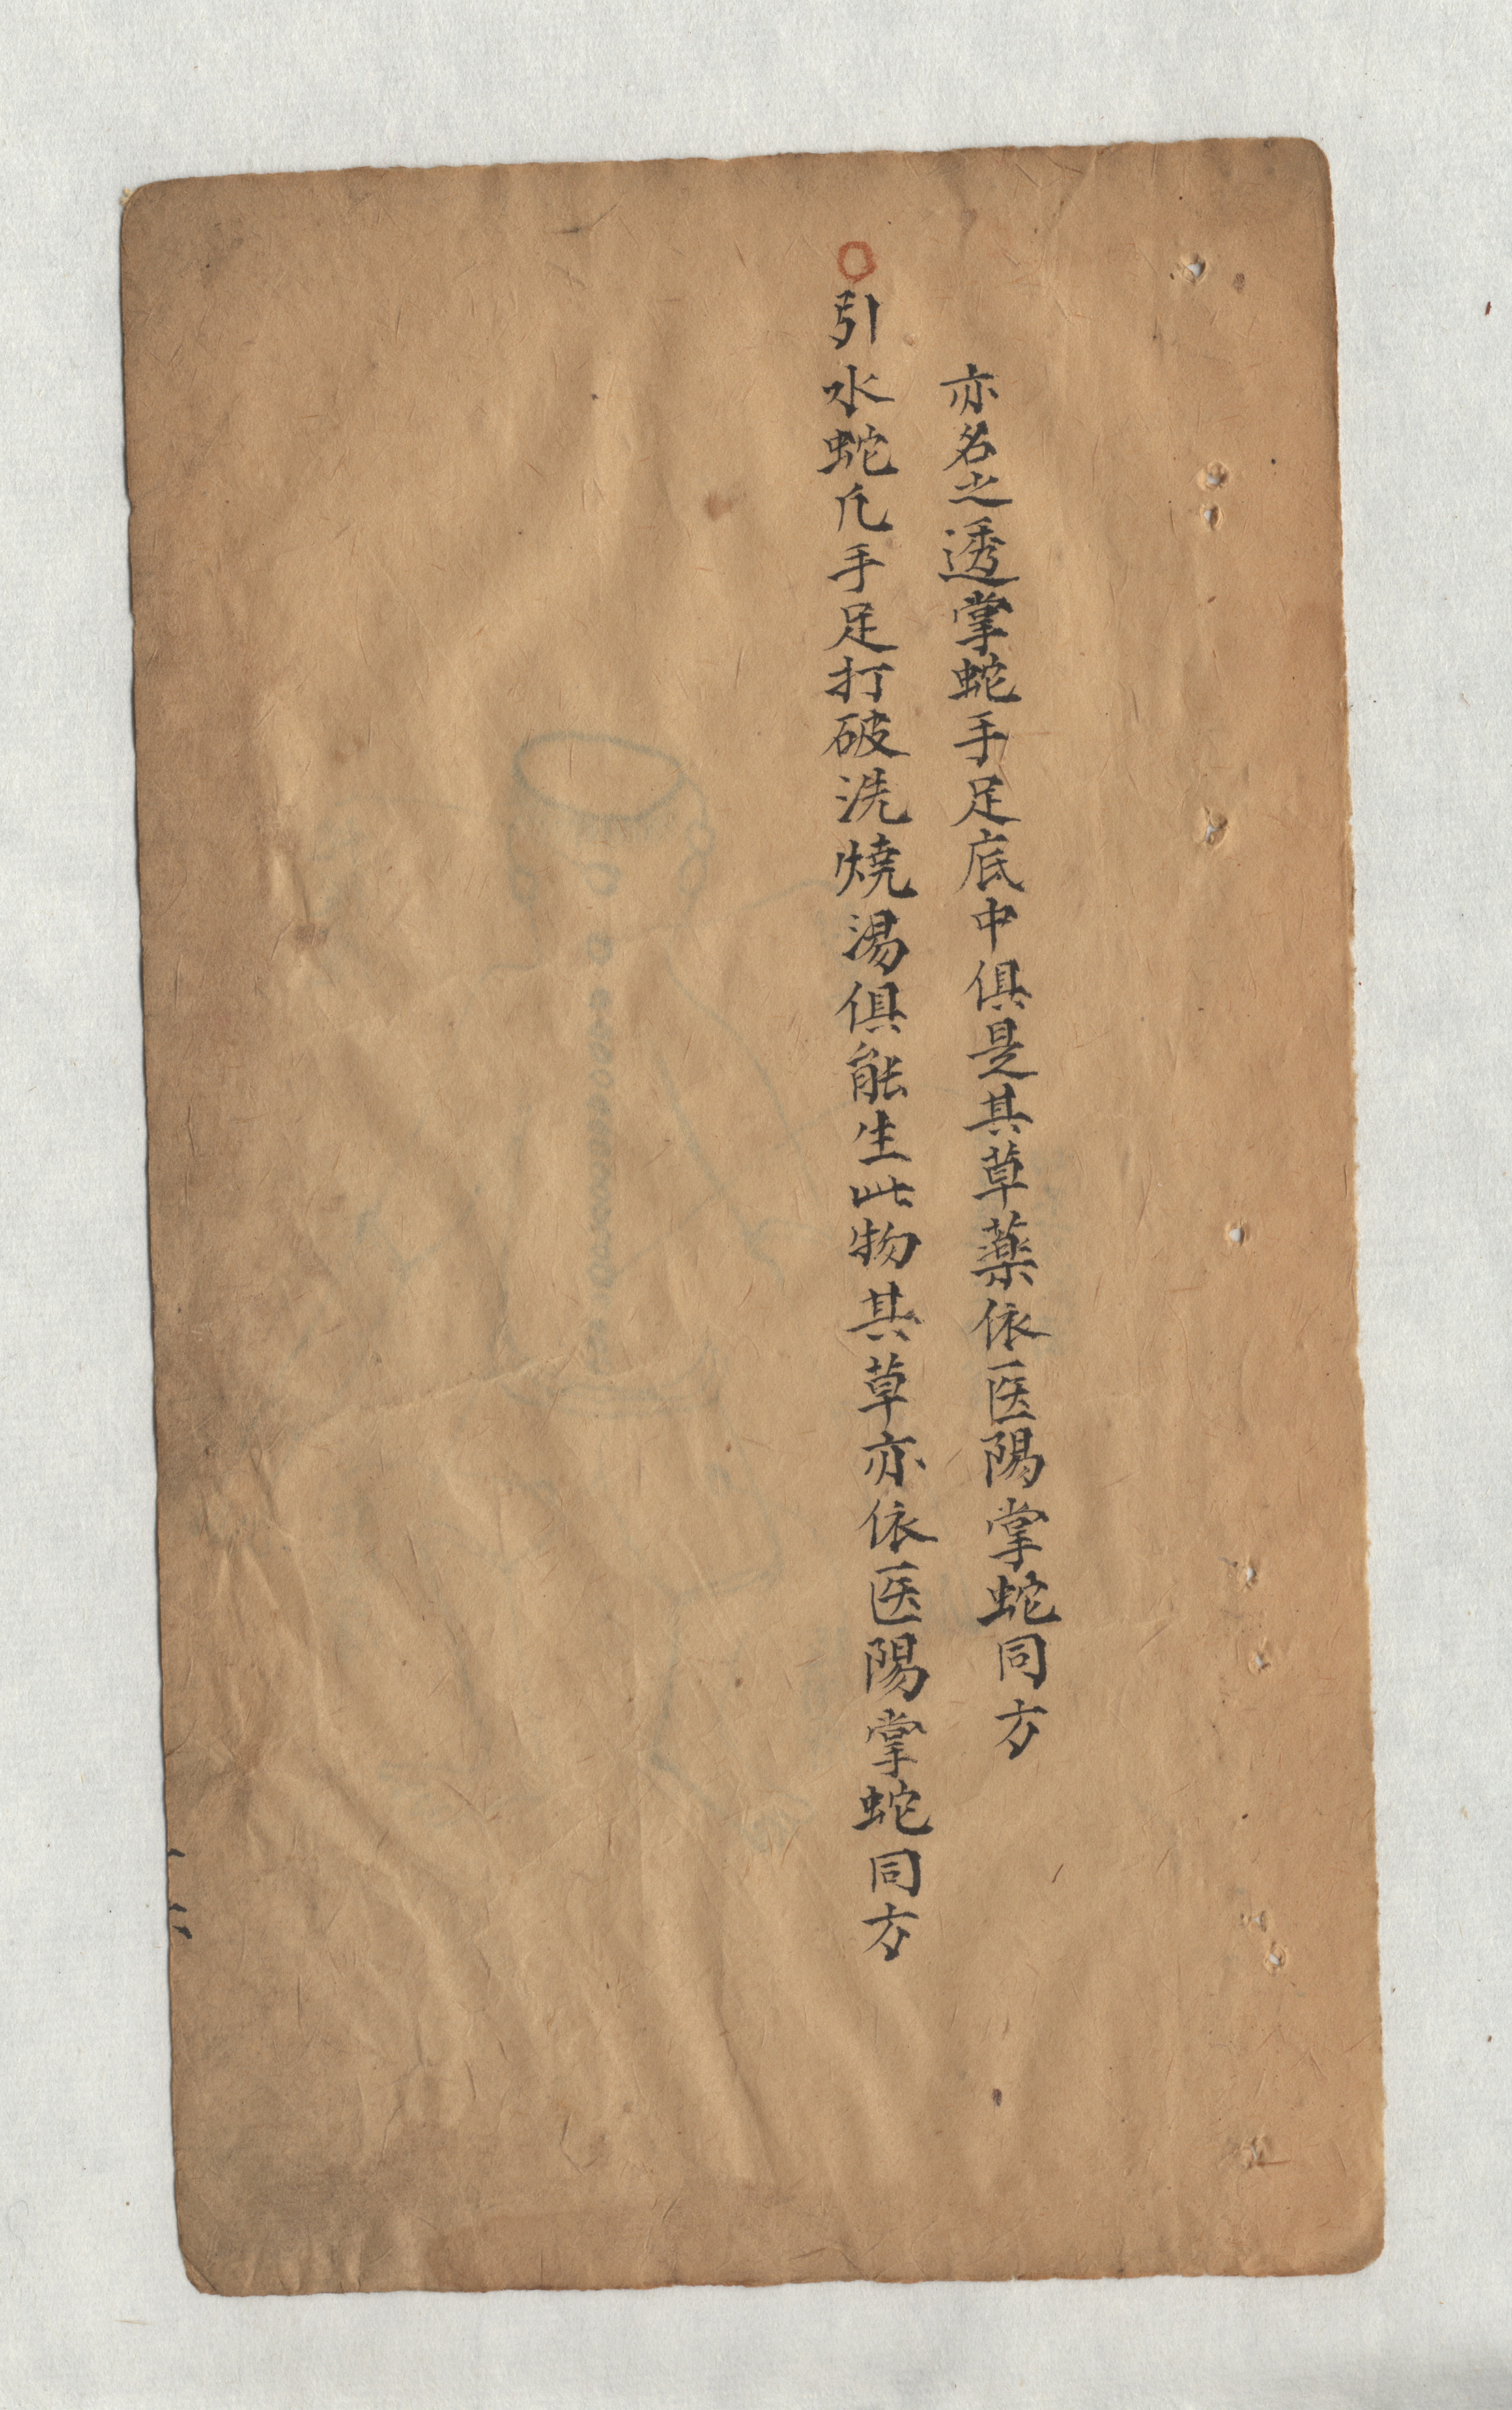 亦名之透掌蛇手足底中俱是其草薬依医陽掌蛇同方
○引水蛇凢手足打破洗焼湯俱能生此物其草亦依医陽掌蛇同方